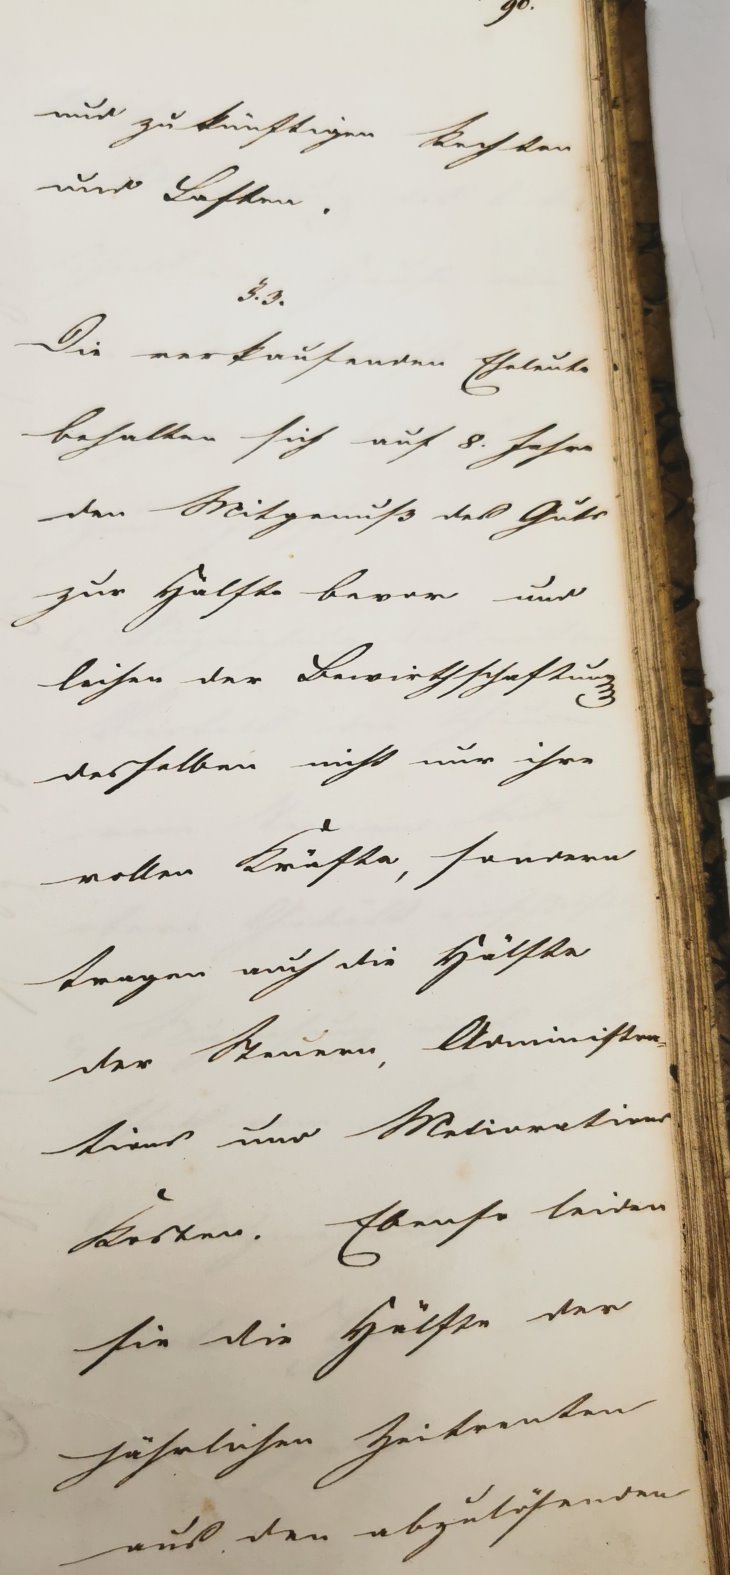 90.
und zukünftigen Rechten
und Lasten.
§.3.
Die verkaufenden Eheleute
behalten sich auf 8. Jahre
den Mitgenuß des Guts
zur Hälfte bevor und
leihen der Bewirthschaftung
desselben nicht nur ihre
vollen Kräfte, sondern
tragen auch die Hälfte
der Steuern, Administra-
tions und Meliorations
Kosten. Ebenso leiden
sie die Hälfte der
jährlichen Zeitrenten
aus den abzulösenden